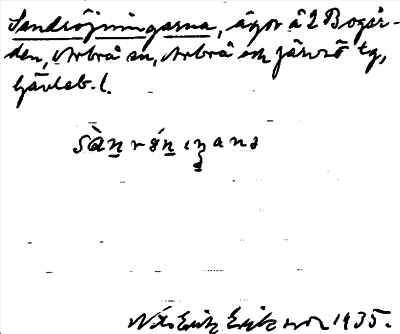 Sandröjningarna, ägor å 2 Bogår-
den, Arbrå sn, Arbrå och Järvsö tg,
Gävleb. l.
sànrö́niŋana
Nils Erik Eriksson 1935.